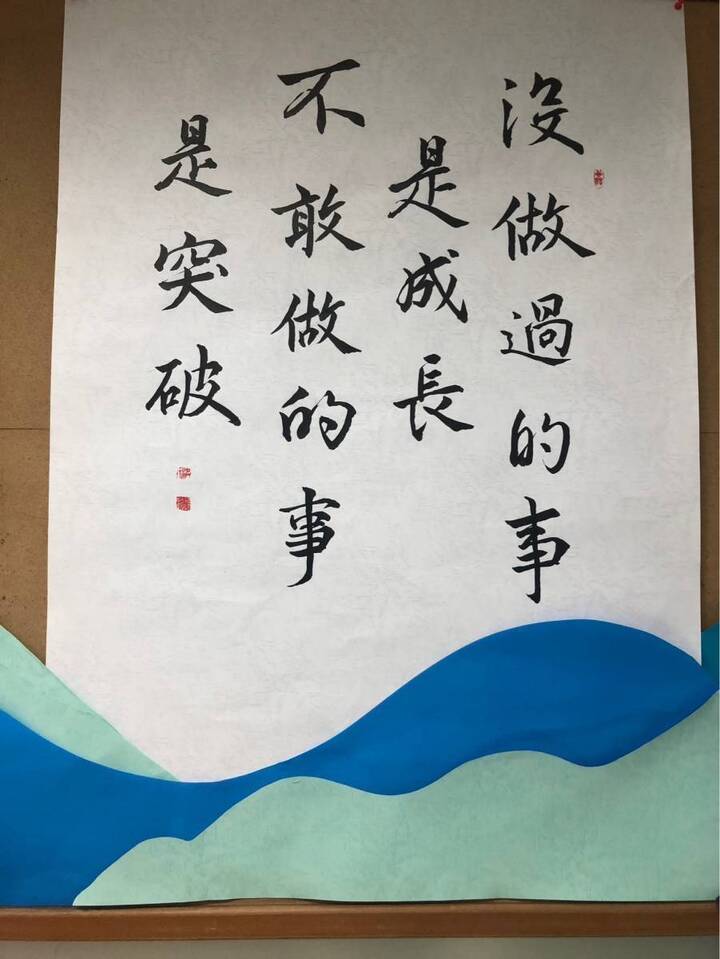 沒做過的事
是成長
不敢做的事
是突破